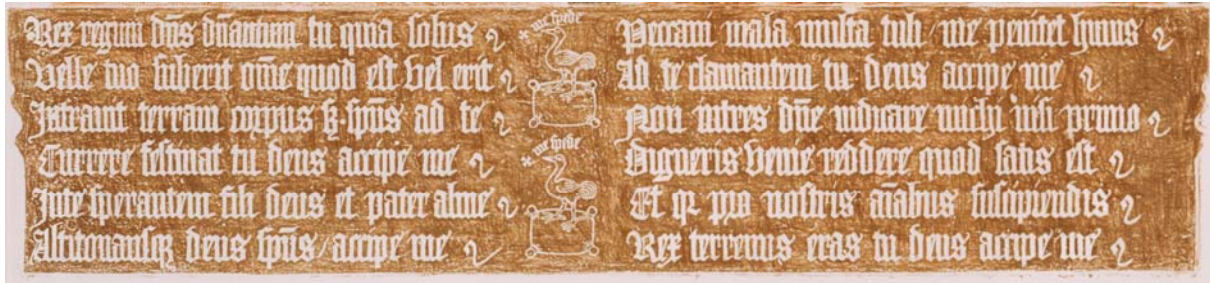 Rex regum dn̄s dn̄antium tu quia solus
Velle tuo suberit om̄e quod est vel erit
Intrant terram corpus sꝫ sp̄us ad te
Currere festinat tu deus accipe me
In te sperantem fili deus et pater alme
Altitonansqꝫ deus sp̄us / accipe me
me spede
me spede
Peccavi mala multa tuli / me penitet huius
Ad te clamantem tu deus accipe me
Non intres dn̄e iudicare michi nisi primo
Digneris venie reddere quod satis est
Et qꝛ pro nostris aīabus suscipiendis
Rex terrenus eras tu deus accipe me